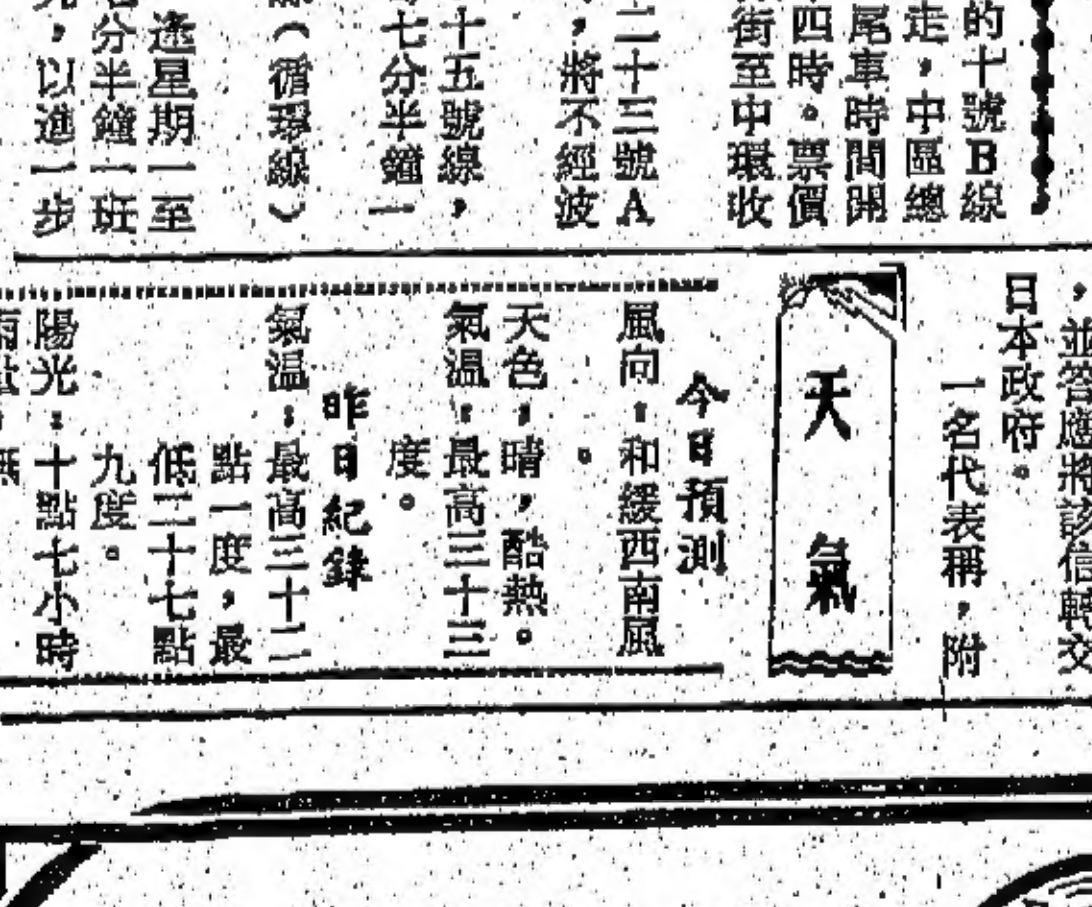 的十號B線
走，中區總
尾車時間開
四時。票價
街至中環收
二十三號A
，將不經波
十五號線，
七分半鐘一
（循環線）
逢星期一至
分半鐘一班
，以進一步
，並答應將該信轉交
日本政府。
一名代表稱，附
天氣
今日預測
風向：和緩西南風
。
天色：晴，酷熱。
氣溫：最高三十三
度。
昨日紀錄
氣溫：最高三十二
點一度，最
低二十七點
九度。
陽光：十點七小時